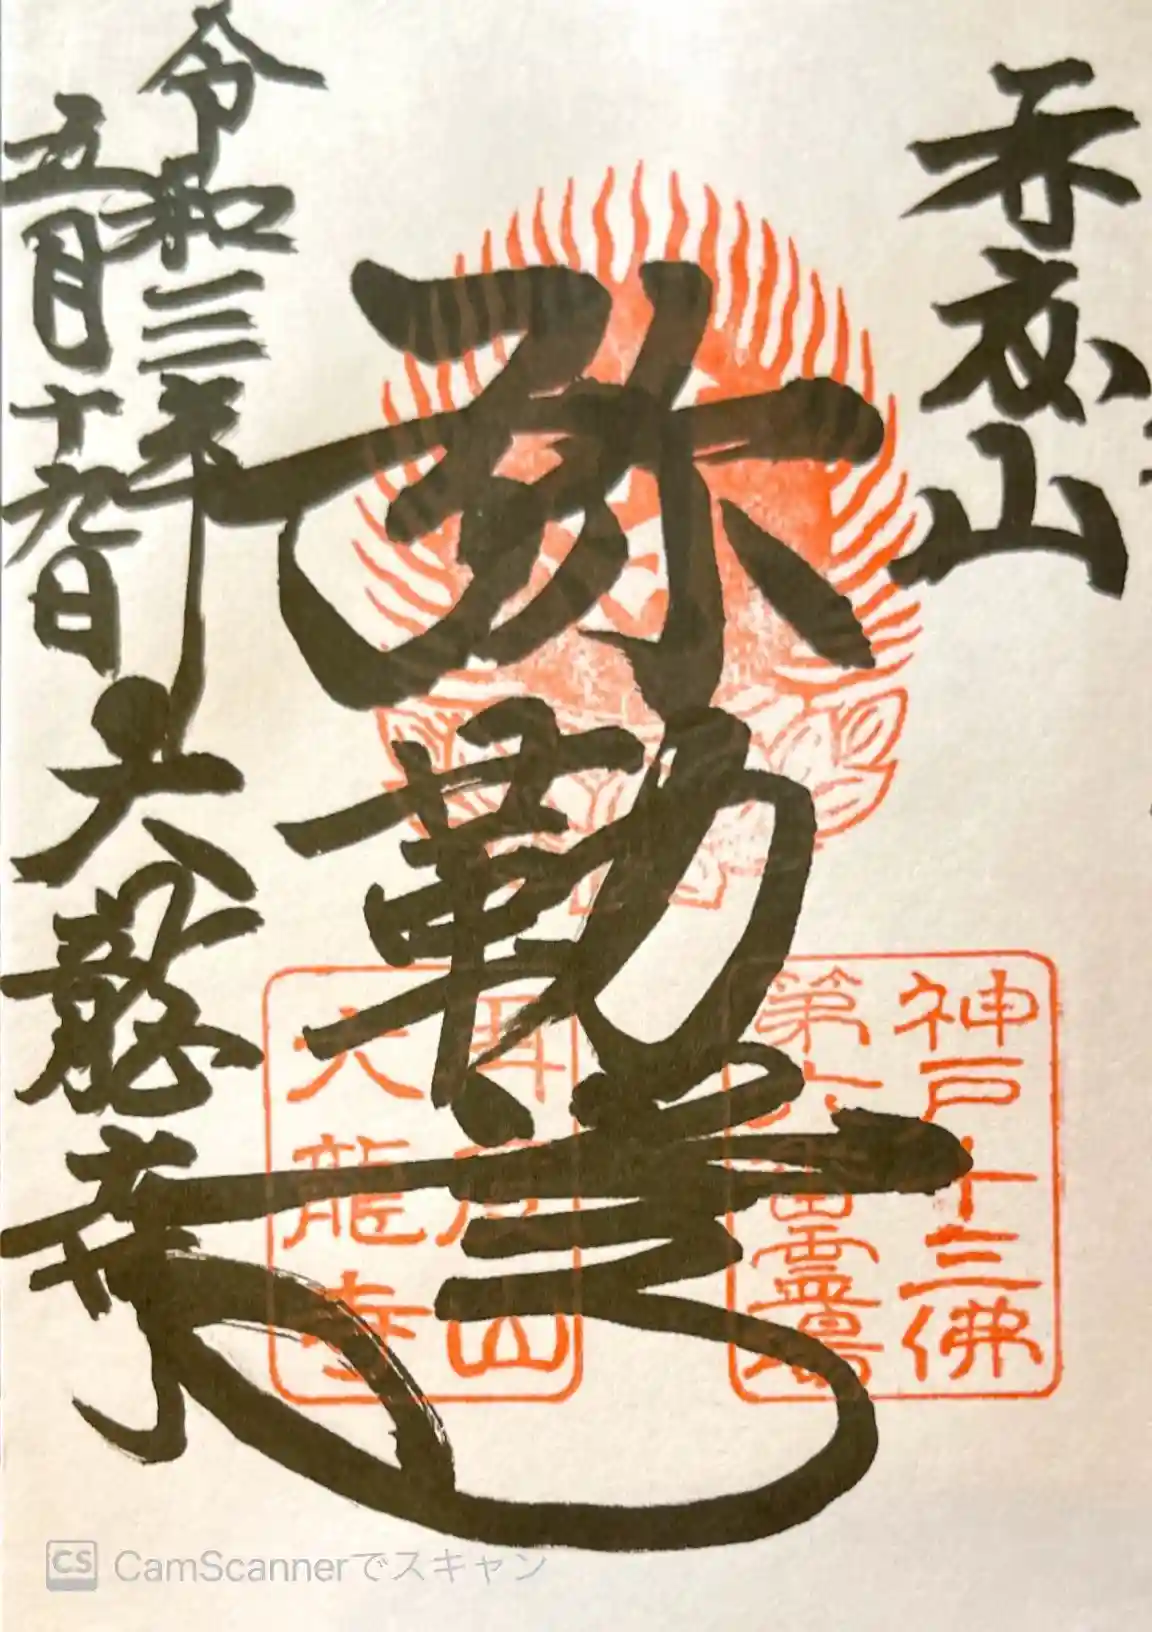 再度山
弥勒
令和三年
五月十九日
大龍寺
神戸十三佛
第六番霊場
再度山
大龍寺
CS CamScannerでスキャン